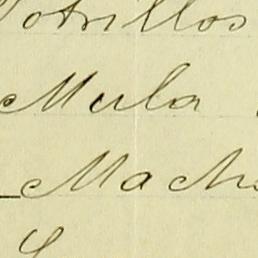 Potrillos
Mula
Mach